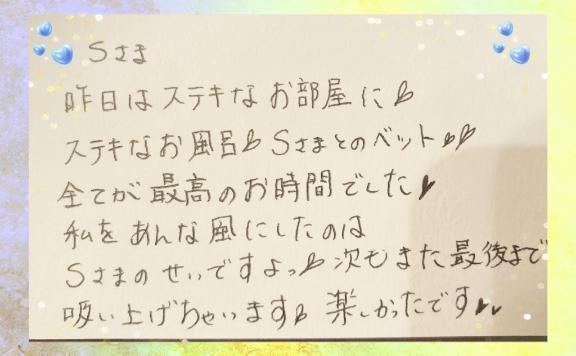 Sさま
昨日はステキなお部屋に♪
ステキなお風呂♪Sさまとのベット♪♪
全てが最高のお時間でした♥
私をあんな風にしたのは
Sさまのせいですよっ♪次もまた最後まで
吸い上げちゃいます♪楽しかったです♥♥